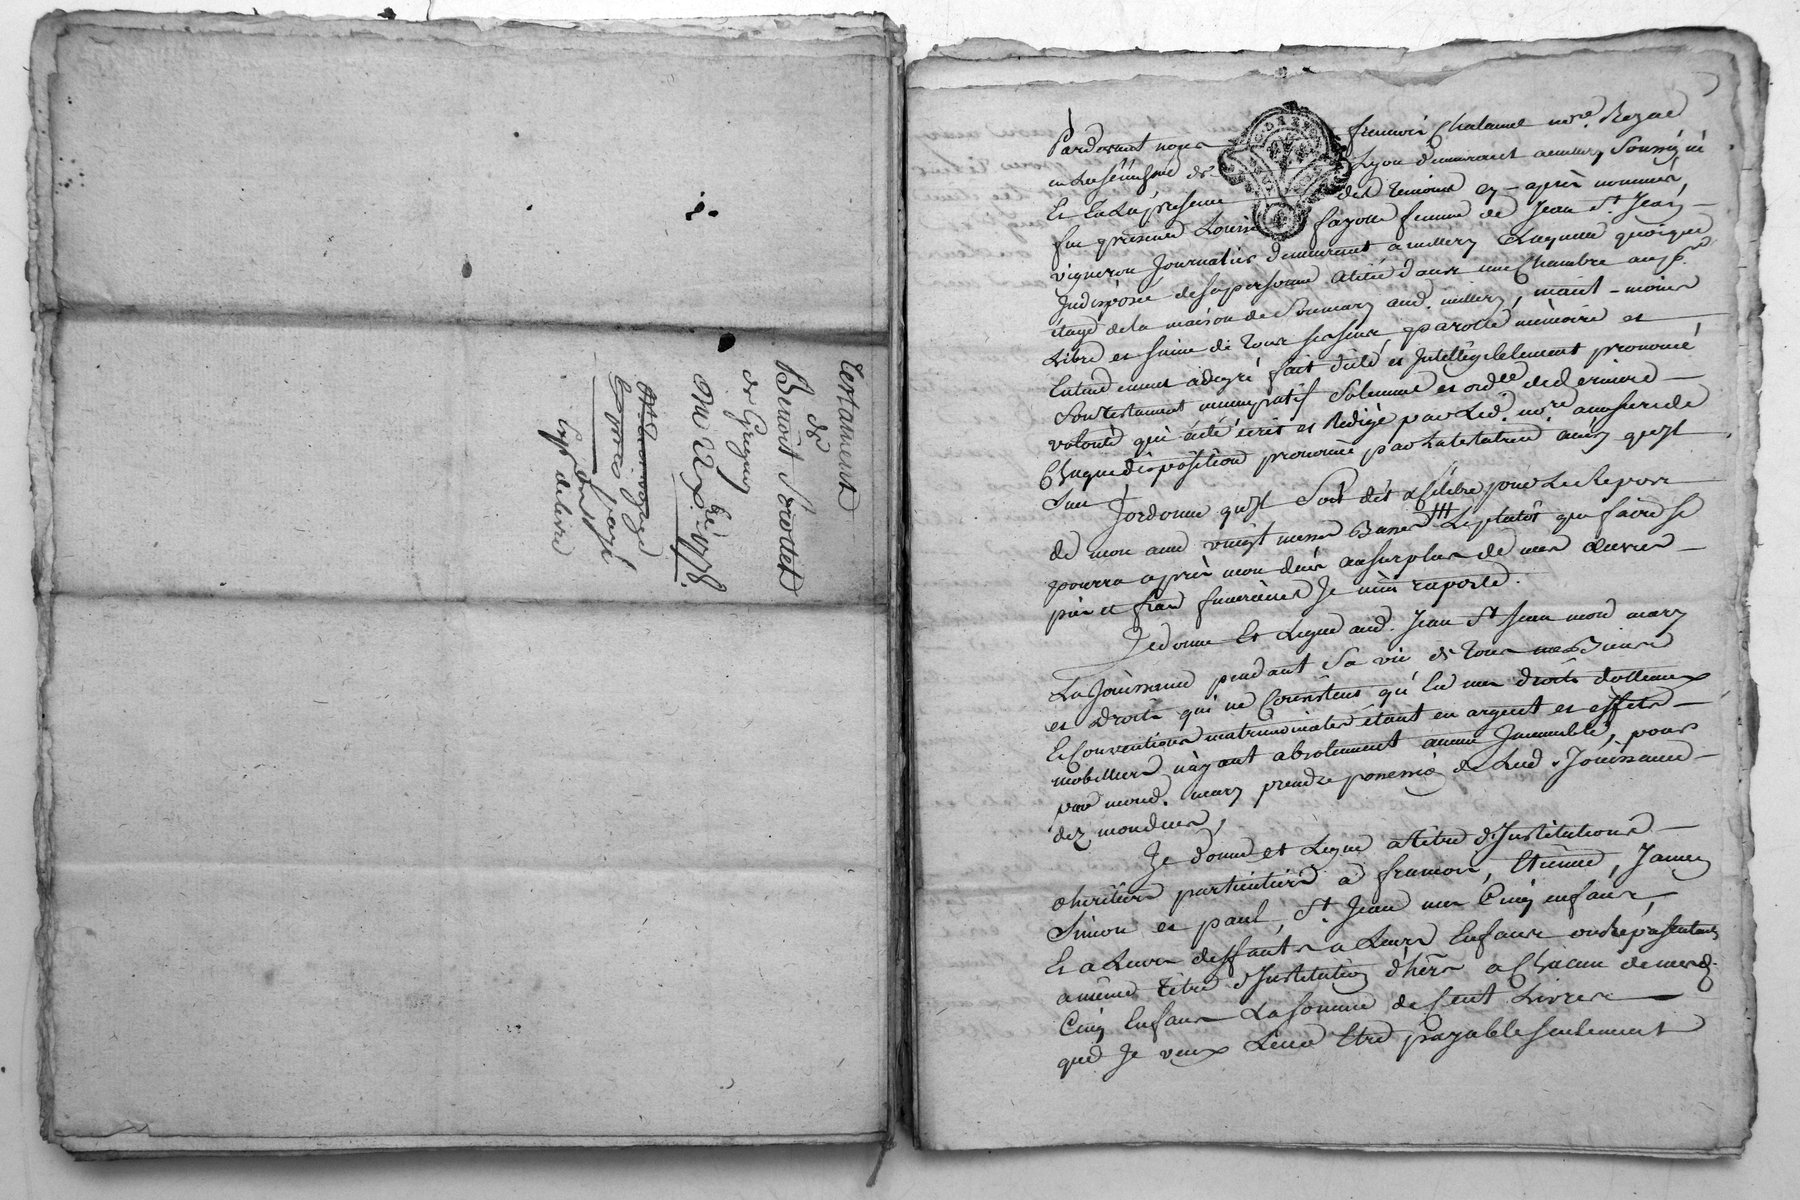 Testament
de
Benoit
de Grigny
Du 22 xbre 1778.
Pardevant nous françois Chalamel nore. Royal
en La sénéchaussé de Lyon demeurant a millery Soussigné
Et En La présence des temoins cy-après nommés
fut présente Louise fayolle femme de Jean St. Jean,
vigneron Journalier demeurant a millery Laquelle quoique
Indisposée de sa personne alitée dans une Chambre au pr.
étage de la maison de Sonmary aud. millery, néant-moins
Libre et saine de tous ses sens, parolle mémoire et
Entendement a degré fait dicté et Intelligiblement prononcé
Son testament nuncupatif Solemnel et ordre de derniere
volonté qui a été écrit et Rédigé par Led. nore. a mesure de
Chaque disposition prononcée par La testatrice ainsy qu'il
Suit J'ordonne qu'il Soit dit et célébré pour Le Repos
de mon ame vingt messes Basses Le plutôt que faire se
pourra après mon décès au surplus de mes œuvres
pies et frais funeraires Je m'en raporte.
Je donne Et Legue aud. Jean St Jean mon mary
La Jouissance pendant Sa vie de tous mes Biens
et Droits qui ne Consistent qu'En mes droits dotteaux
Et Conventions matrimoniales étant en argent et effets
mobilliers n'ayant absolument aucun Immeuble, pour
par mond. mary prendre possession de Lad. Jouissance
dez mon deces,
Je donne et Legue a titre d'Institution
d'heritiers particuliers a françois, Etienne, James
Simon et paul St. Jean mes Cinq enfans
Et a Leurs deffauts a Leurs Enfans ou Représentants
a même titre d'Institution d'hers a Chacun de mesd.
Cinq Enfans La somme de Cent Livres
que Je veux Leur Etre payable seulement